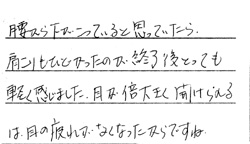 腰から下がこっていると思っていたら、
肩こりもひどかったのが終了後とっても
軽く感じました。目が倍大きく開けられる
は目の疲れがなくなったからですね。